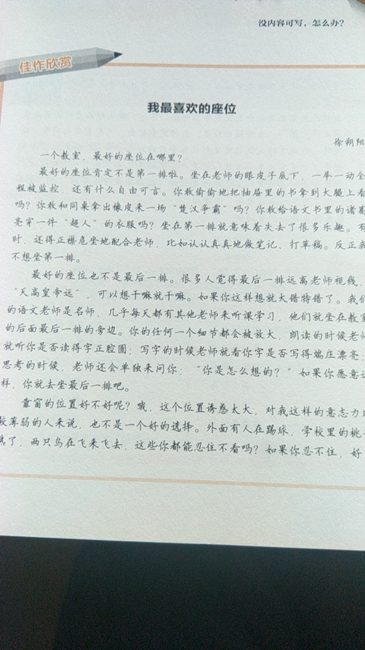 没内容可写，怎么办？
佳作欣赏
我最喜欢的座位
徐朔阳
一个教室，最好的座位在哪里？
最好的座位肯定不是第一排啦。坐在老师的眼皮子底下，一举一动全
程被监控，还有什么自由可言。你敢偷偷地把抽屉里的书拿到大腿上看
吗？你敢和同桌拿出橡皮来一场“楚汉争霸”吗？你敢给语文书里的诸葛
亮穿一件“超人”的衣服吗？坐在第一排就意味着失去了很多乐趣。有
时，还得正襟危坐地配合老师，比如认认真真地做笔记、打草稿。反正我
不想坐第一排。
最好的座位也不是最后一排。很多人觉得最后一排远离老师视线，
“天高皇帝远”，可以想干嘛就干嘛。如果你这样想就大错特错了。我们
的语文老师是名师，几乎每天都有其他老师来听课学习，他们就坐在教室
的后面最后一排的旁边。你的任何一个细节都会被放大，朗读的时候老师
就听你是否读得字正腔圆，写字的时候老师就看你字是否写得端庄漂亮，
思考的时候，老师还会单独来问你，“你是怎么想的？”如果你愿意这
样，你就去坐最后一排吧。
靠窗的位置好不好呢？哦，这个位置诱惑太大，对我这样的意志力
较薄弱的人来说，也不是一个好的选择。外面有人在踢球，学校里的桃
了，两只鸟在飞来飞去，这些你都能忍住不看吗？如果你忍不住，好